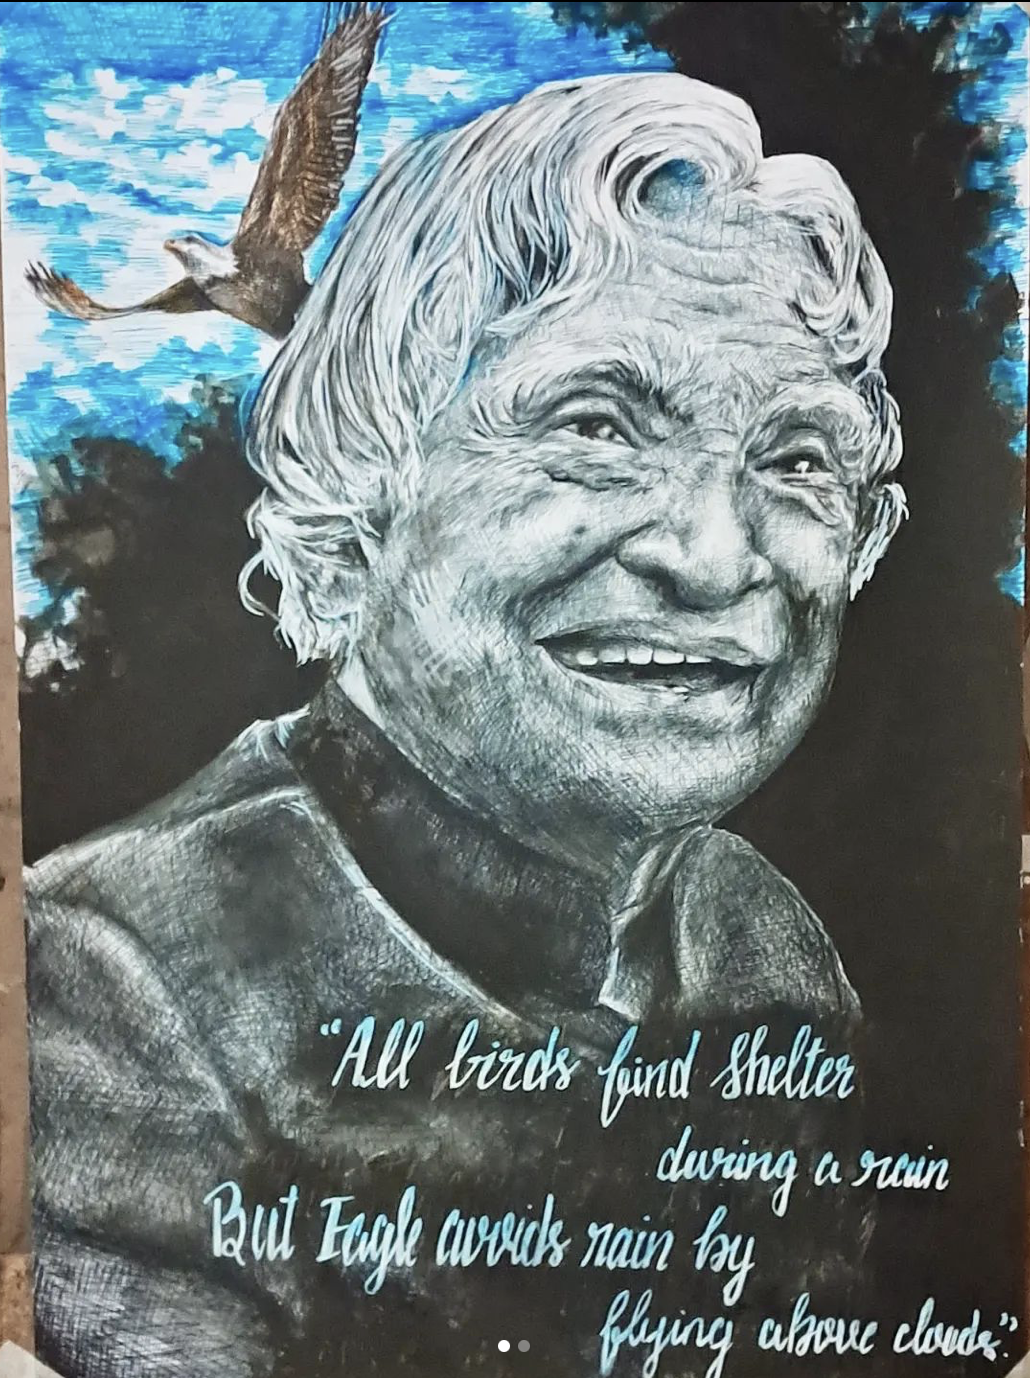 “All birds find Shelter
during a rain
But Eagle avoids rain by
flying above clouds”.